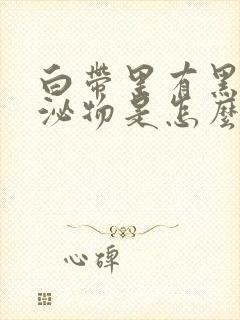 白带里有黑
泌物是怎麽
心碑